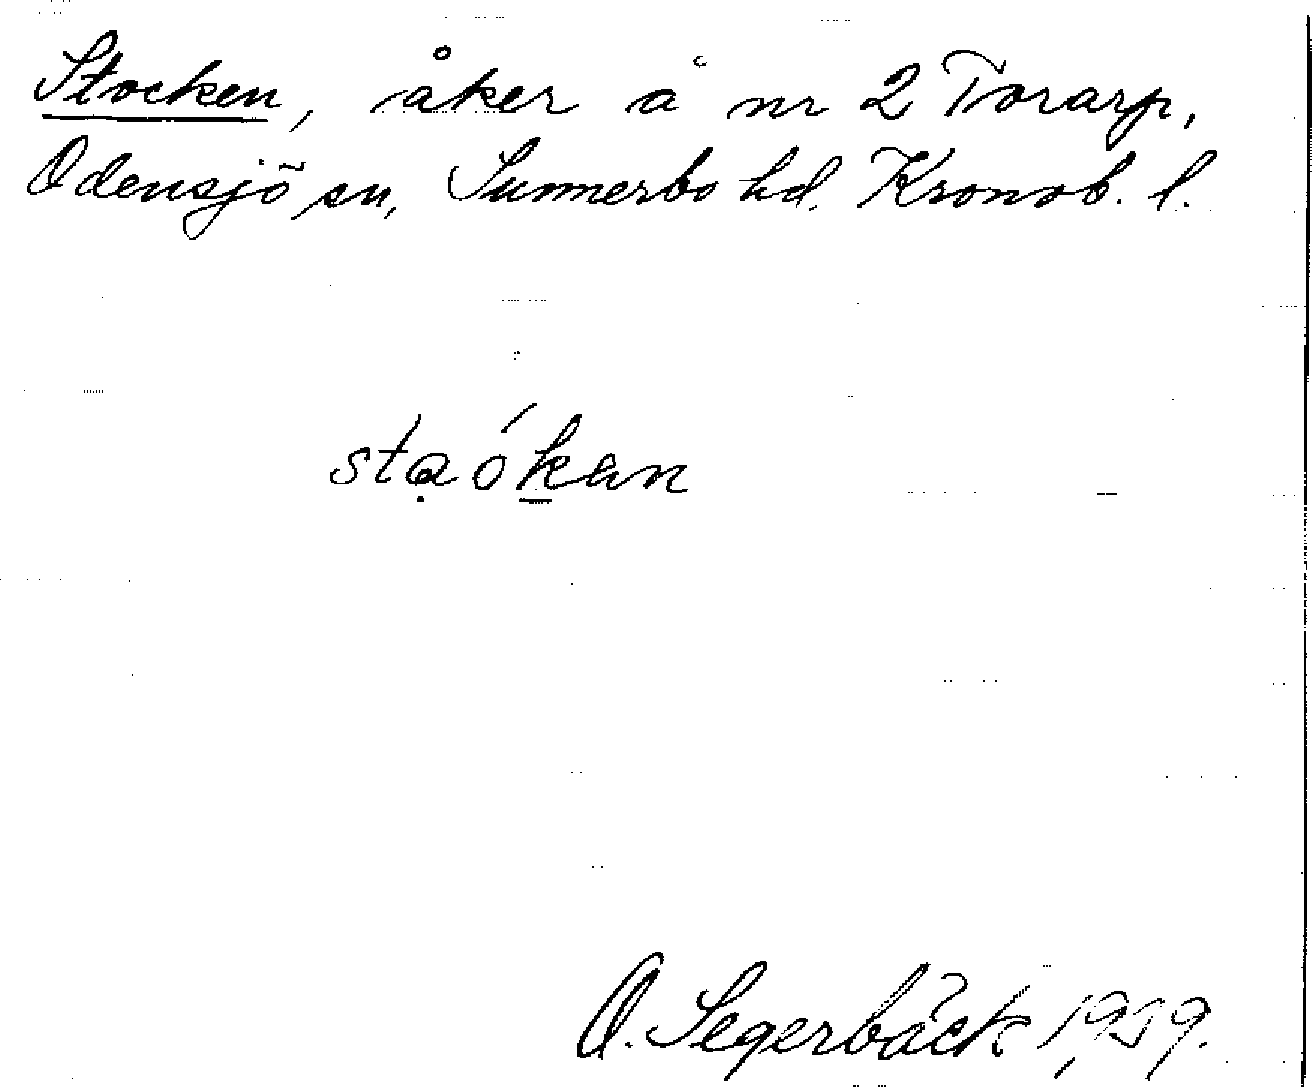 Stocken, åker å nr 2 Torarp,
Odensjö sn, Sunnerbo hd. Kronob. l.
stạók̠en
O. Segerbäck